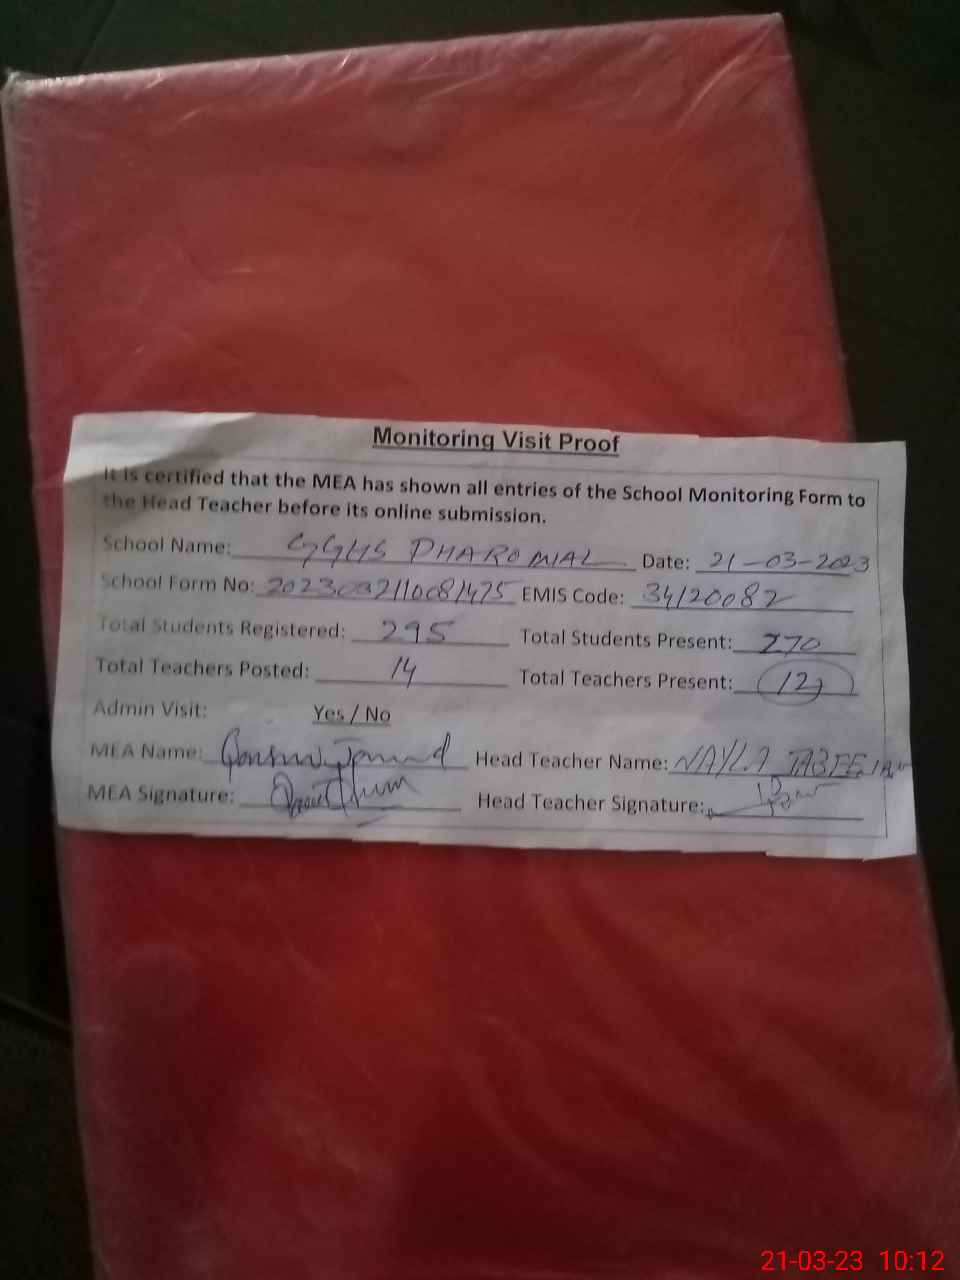 Monitoring Visit Proof
It is certified that the MEA has shown all entries of the School Monitoring Form to
the Head Teacher before its online submission.
School Name: GGHS PHAROWAL Date: 21-03-2023
School Form No: EMIS Code: 34120082
Total Students Registered: 295 Total Students Present: 270
Total Teachers Posted: 14 Total Teachers Present: 12
Admin Visit: Yes / No
MEA Name: Head Teacher Name: NAYLA
MEA Signature: Head Teacher Signature:
21-03-23 10:12